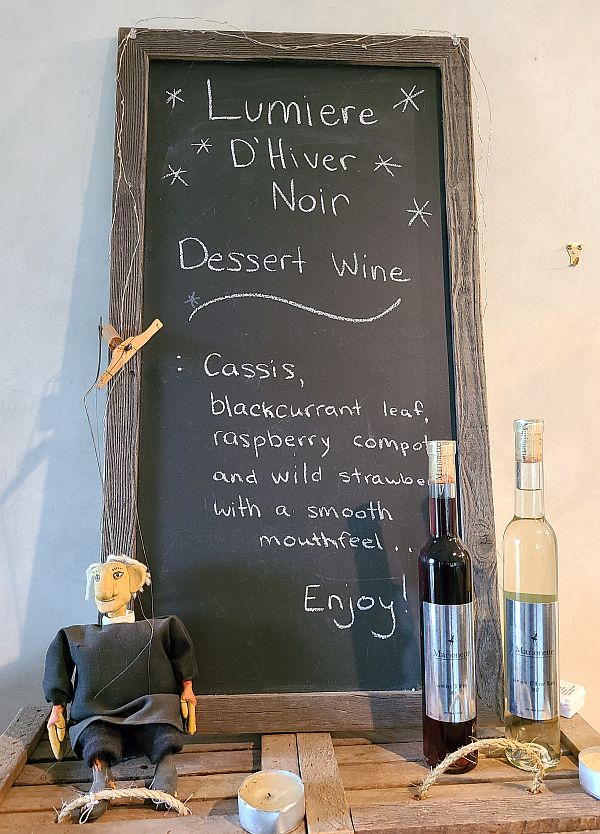 Lumiere
D'Hiver
Noir
Dessert Wine
: Cassis,
blackcurrant leaf,
raspberry compot
and wild strawbe
with a smooth
mouthfeel ..
Enjoy!
Marionette
Marionette
Marionette